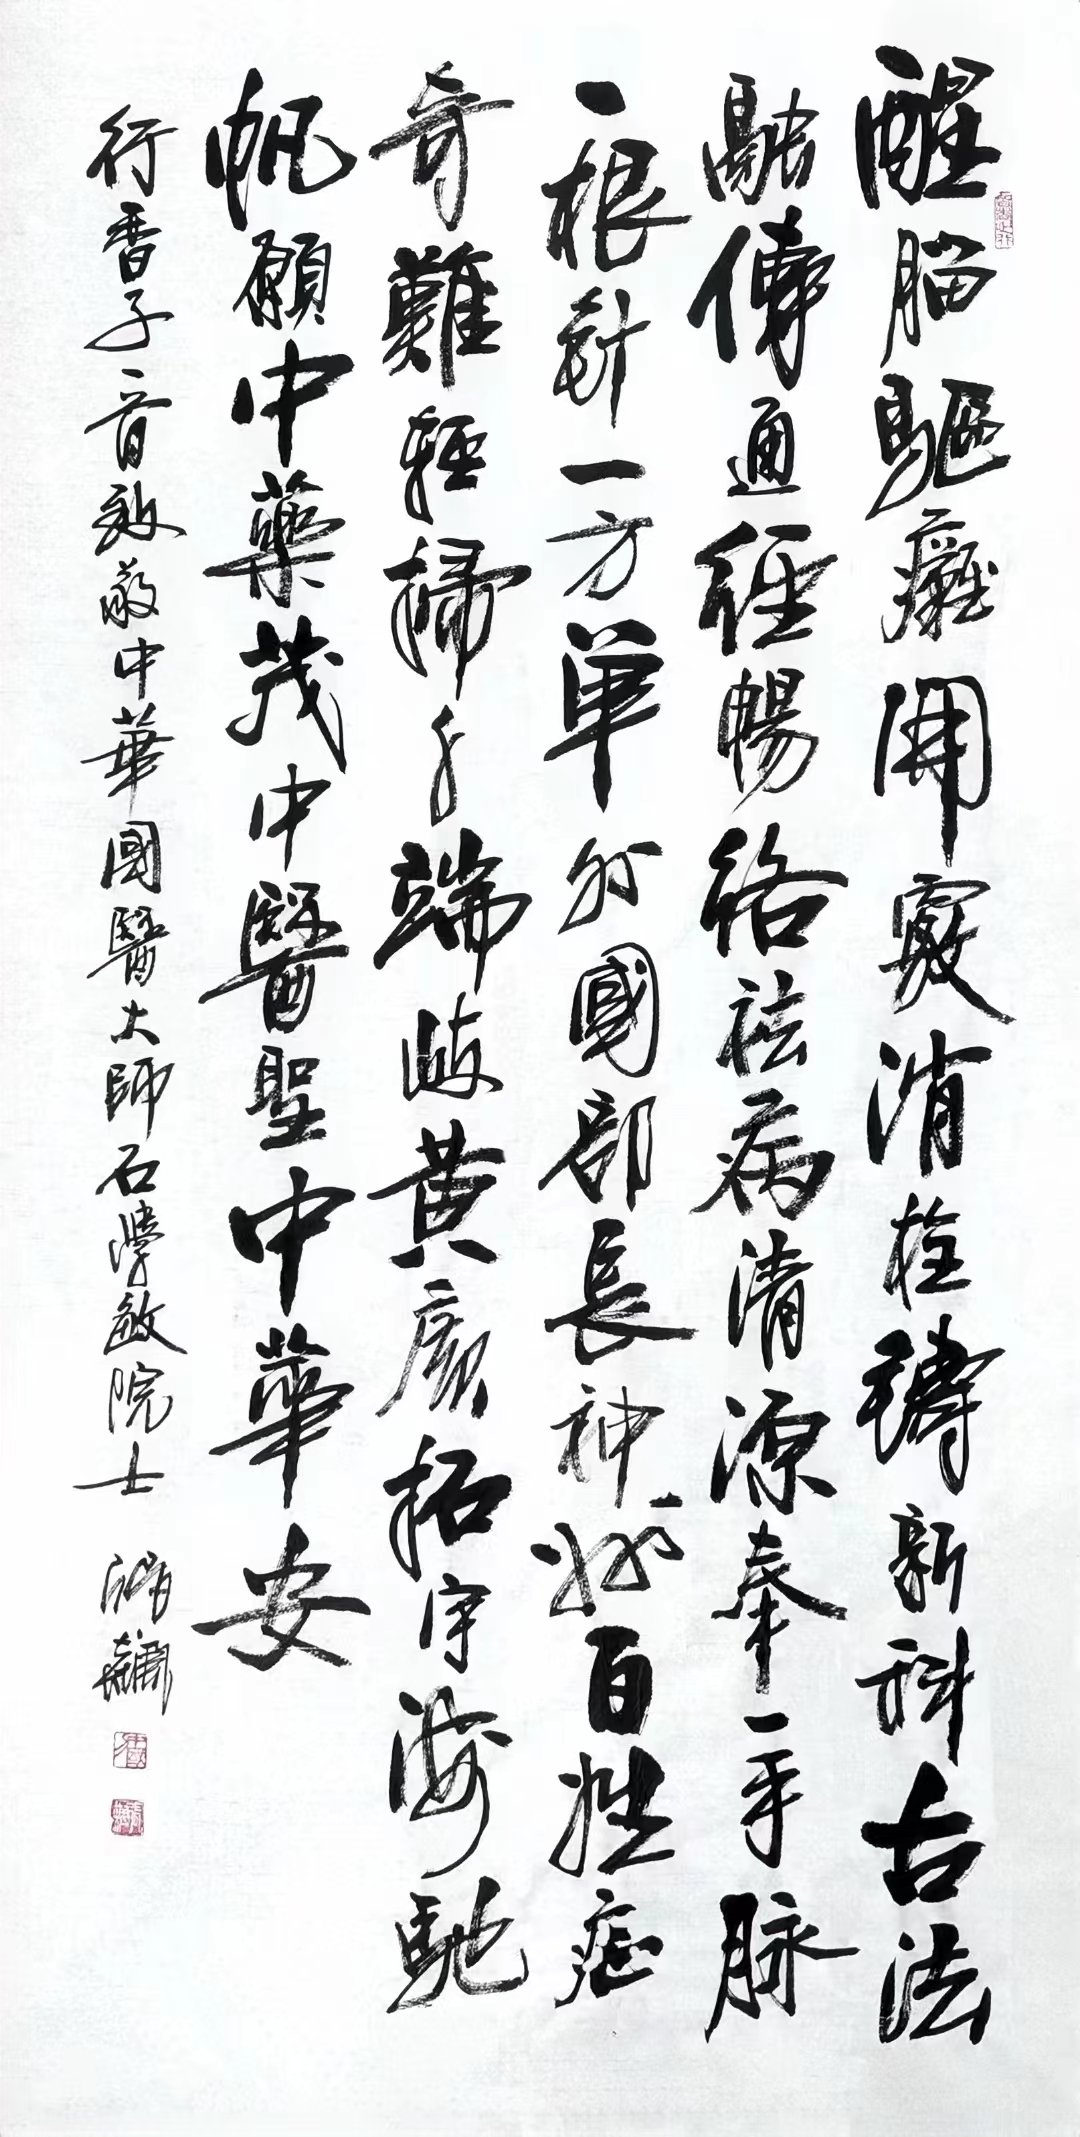 醒腦驅癱開竅消栓鑄新科古法
融傳通經暢絡祛病清源奉一手脉
一根針一方單外國部長神州百姓症
奇難輕掃千端岐黃廣拓宇海馳
帆願中藥茂中醫聖中華安
行香子一首致敬中華國醫大師石學敏院士